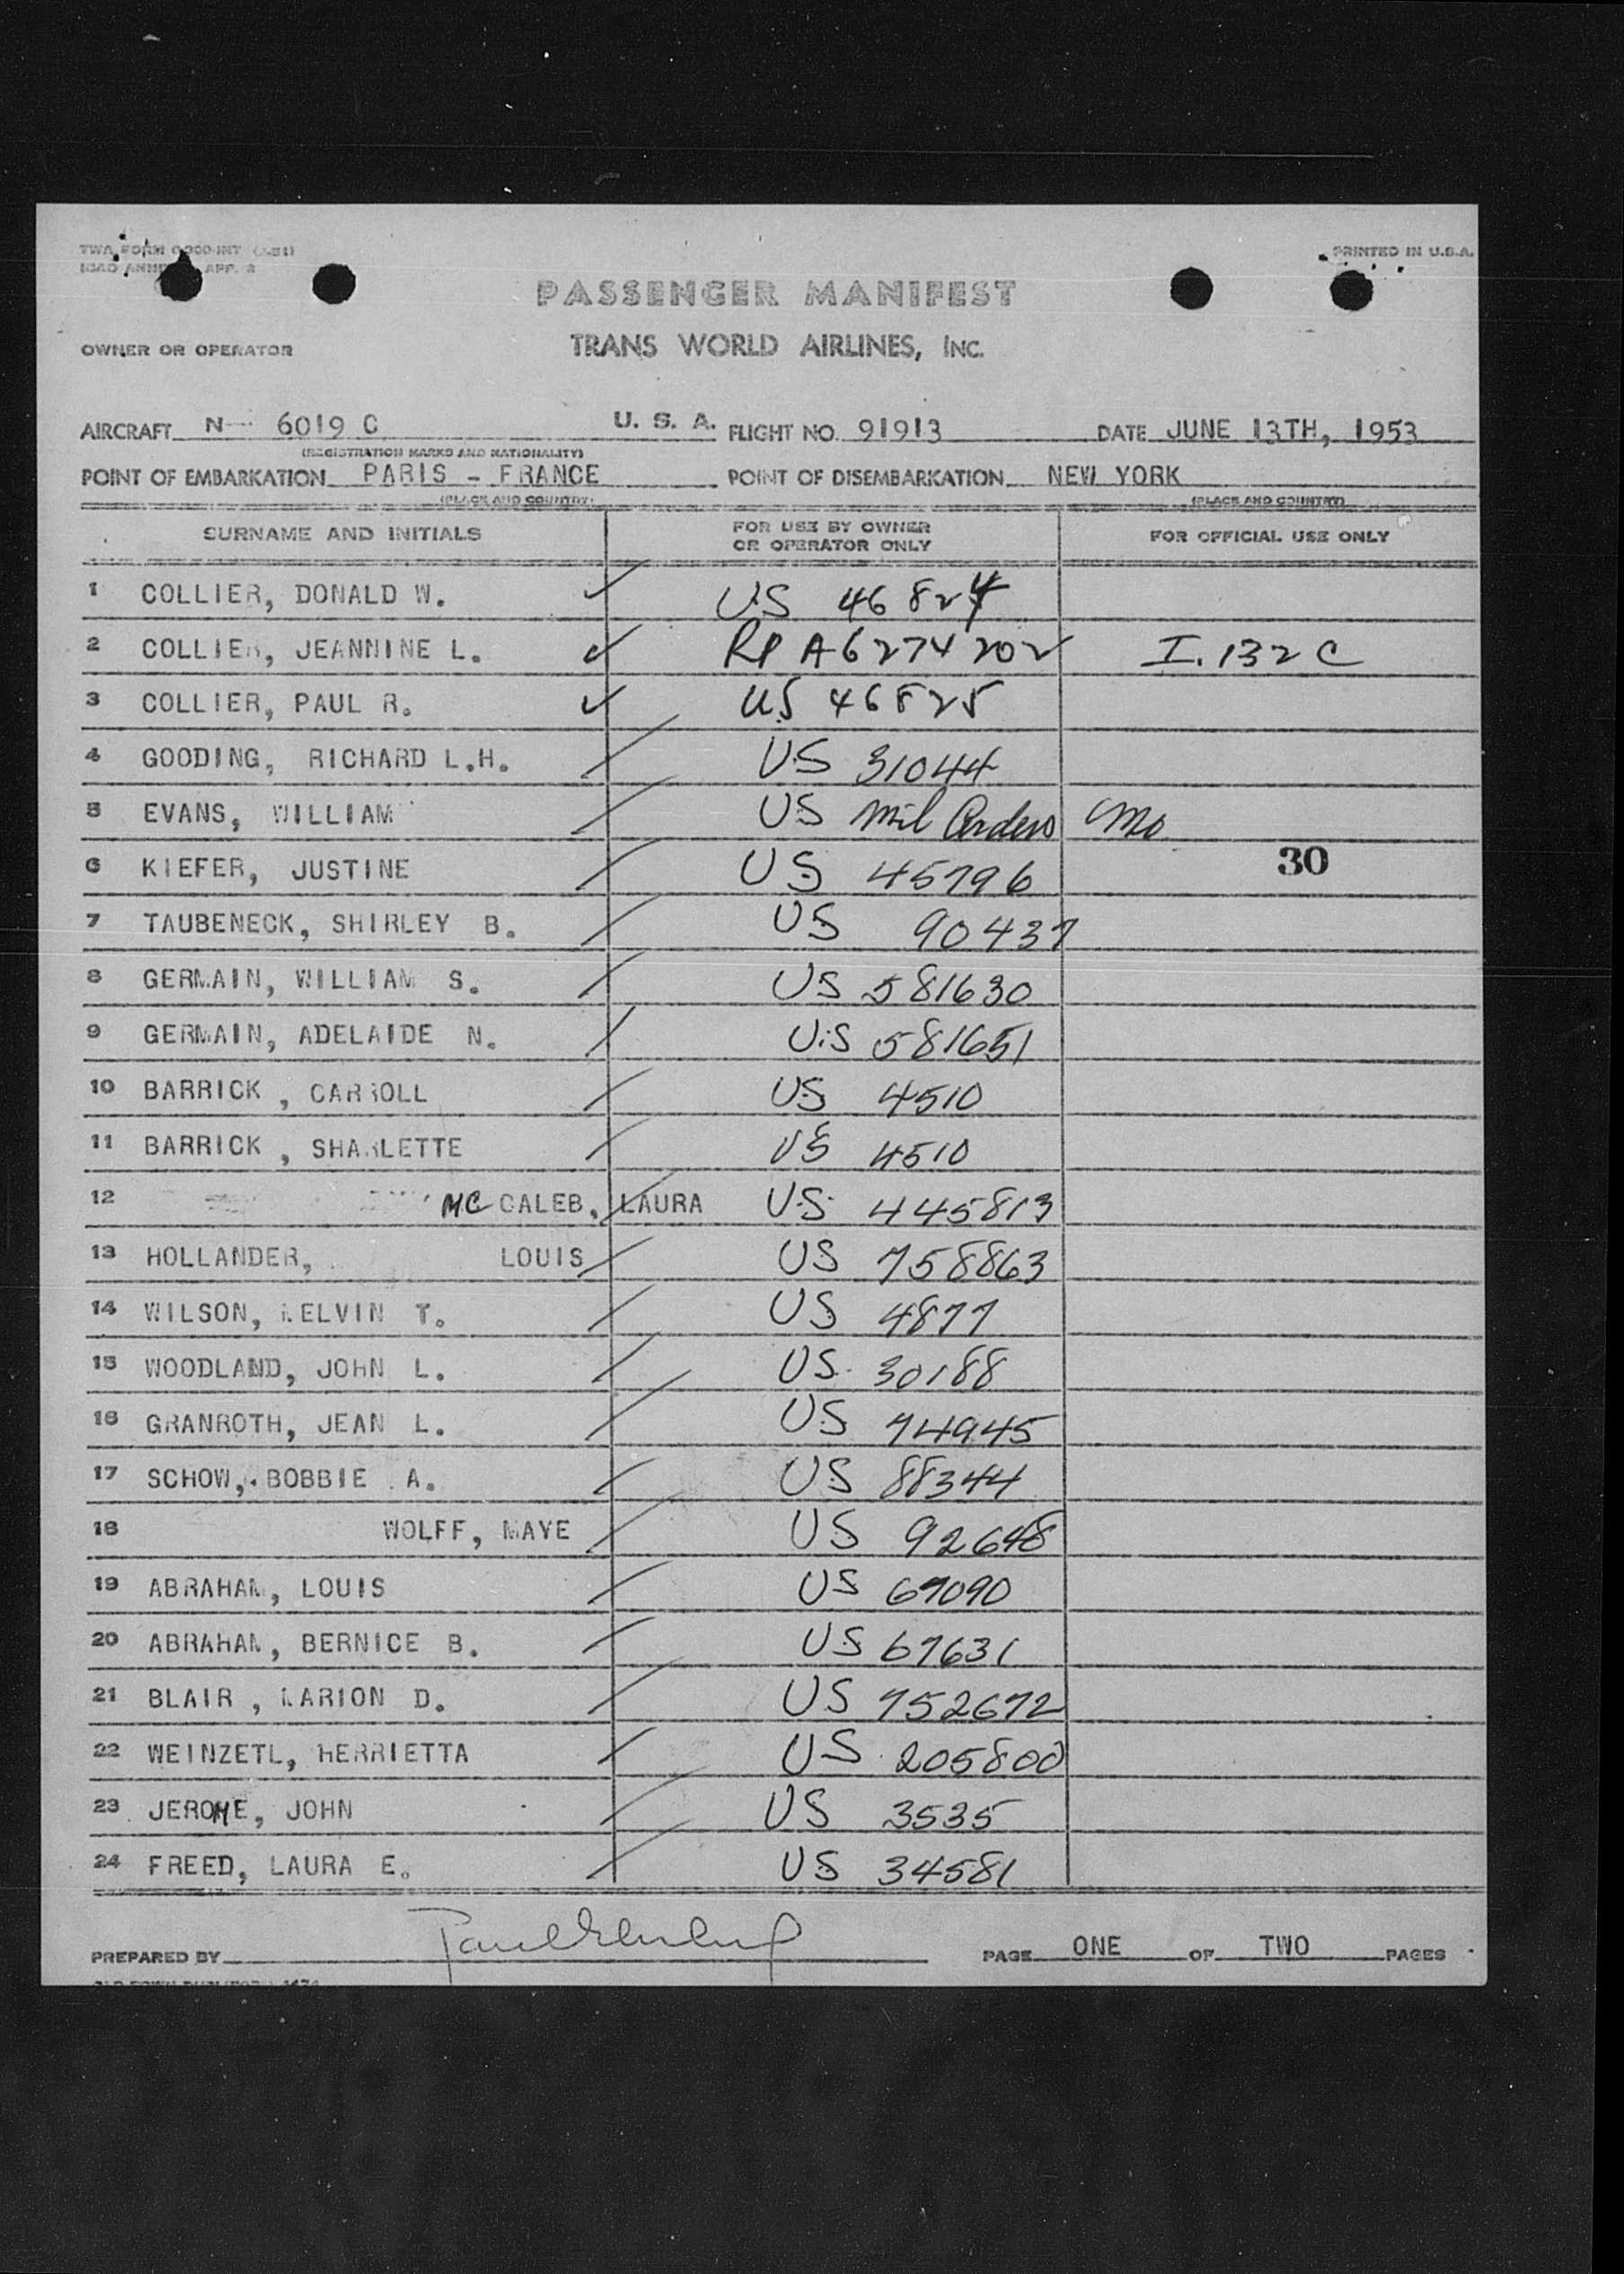 TWA FORM
PRINTED IN U.S.A.
PASSENGER MANIFEST
OWNER OR OPERATOR TRANS WORLD AIRLINES, INC.
AIRCRAFT N- 6019 C U. S. A. FLIGHT NO. 91913 DATE JUNE 13TH, 1953
(REGISTRATION MARKS AND NATIONALITY)
POINT OF EMBARKATION PARIS - FRANCE POINT OF DISEMBARKATION NEW YORK
(PLACE AND COUNTRY) (PLACE AND COUNTRY)
SURNAME AND INITIALS FOR USE BY OWNER OR OPERATOR ONLY FOR OFFICIAL USE ONLY
1 COLLIER, DONALD W. US 46824
2 COLLIER, JEANNINE L. RP A6274202 I.132C
3 COLLIER, PAUL R. US 46825
4 GOODING, RICHARD L.H. US 31044
5 EVANS, WILLIAM US Mil Orders Mo
30
6 KIEFER, JUSTINE US 45796
7 TAUBENECK, SHIRLEY B. US 90437
8 GERMAIN, WILLIAM S. US 581630
9 GERMAIN, ADELAIDE N. US 581651
10 BARRICK , CARROLL US 4510
11 BARRICK , SHARLETTE US 4510
12 MC CALEB, LAURA US 445813
13 HOLLANDER, LOUIS US 758863
14 WILSON, MELVIN T. US 4877
15 WOODLAND, JOHN L. US 30188
16 GRANROTH, JEAN L. US 74945
17 SCHOW, BOBBIE A. US 88344
18 WOLFF, MAYE US 92648
19 ABRAHAM, LOUIS US 67090
20 ABRAHAM, BERNICE B. US 67631
21 BLAIR , MARION D. US 752672
22 WEINZETL, HERRIETTA US 205800
23 JEROME, JOHN US 3535
24 FREED, LAURA E. US 34581
PREPARED BY PAGE ONE OF TWO PAGES